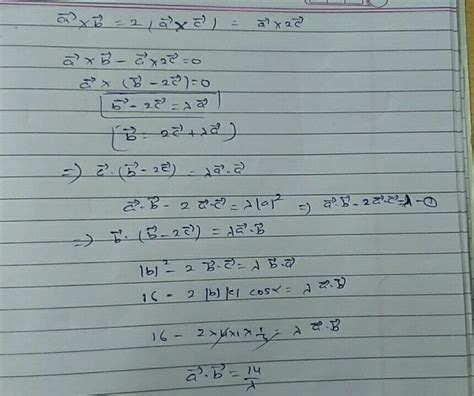 a⃗ × b⃗ = 2 (a⃗ × c⃗) = a⃗ × 2c⃗
a⃗ × b⃗ - a⃗ × 2c⃗ = 0
a⃗ × (b⃗ - 2c⃗) = 0
b⃗ - 2c⃗ = λa⃗
(b⃗ = 2c⃗ + λa⃗)
⇒ a⃗ · (b⃗ - 2c⃗) = λa⃗ · a⃗
a⃗ · b⃗ - 2 a⃗ · c⃗ = λ|a|² ⇒ a⃗ · b⃗ - 2a⃗ · c⃗ = λ - ①
⇒ b⃗ · (b⃗ - 2c⃗) = λa⃗ · b⃗
|b|² - 2 b⃗ · c⃗ = λ b⃗ · a⃗
16 - 2 |b| |c| cosα = λ a⃗ · b⃗
16 - 2 × 4 × 1 × 1/4 = λ a⃗ · b⃗
a⃗ · b⃗ = 14/λ